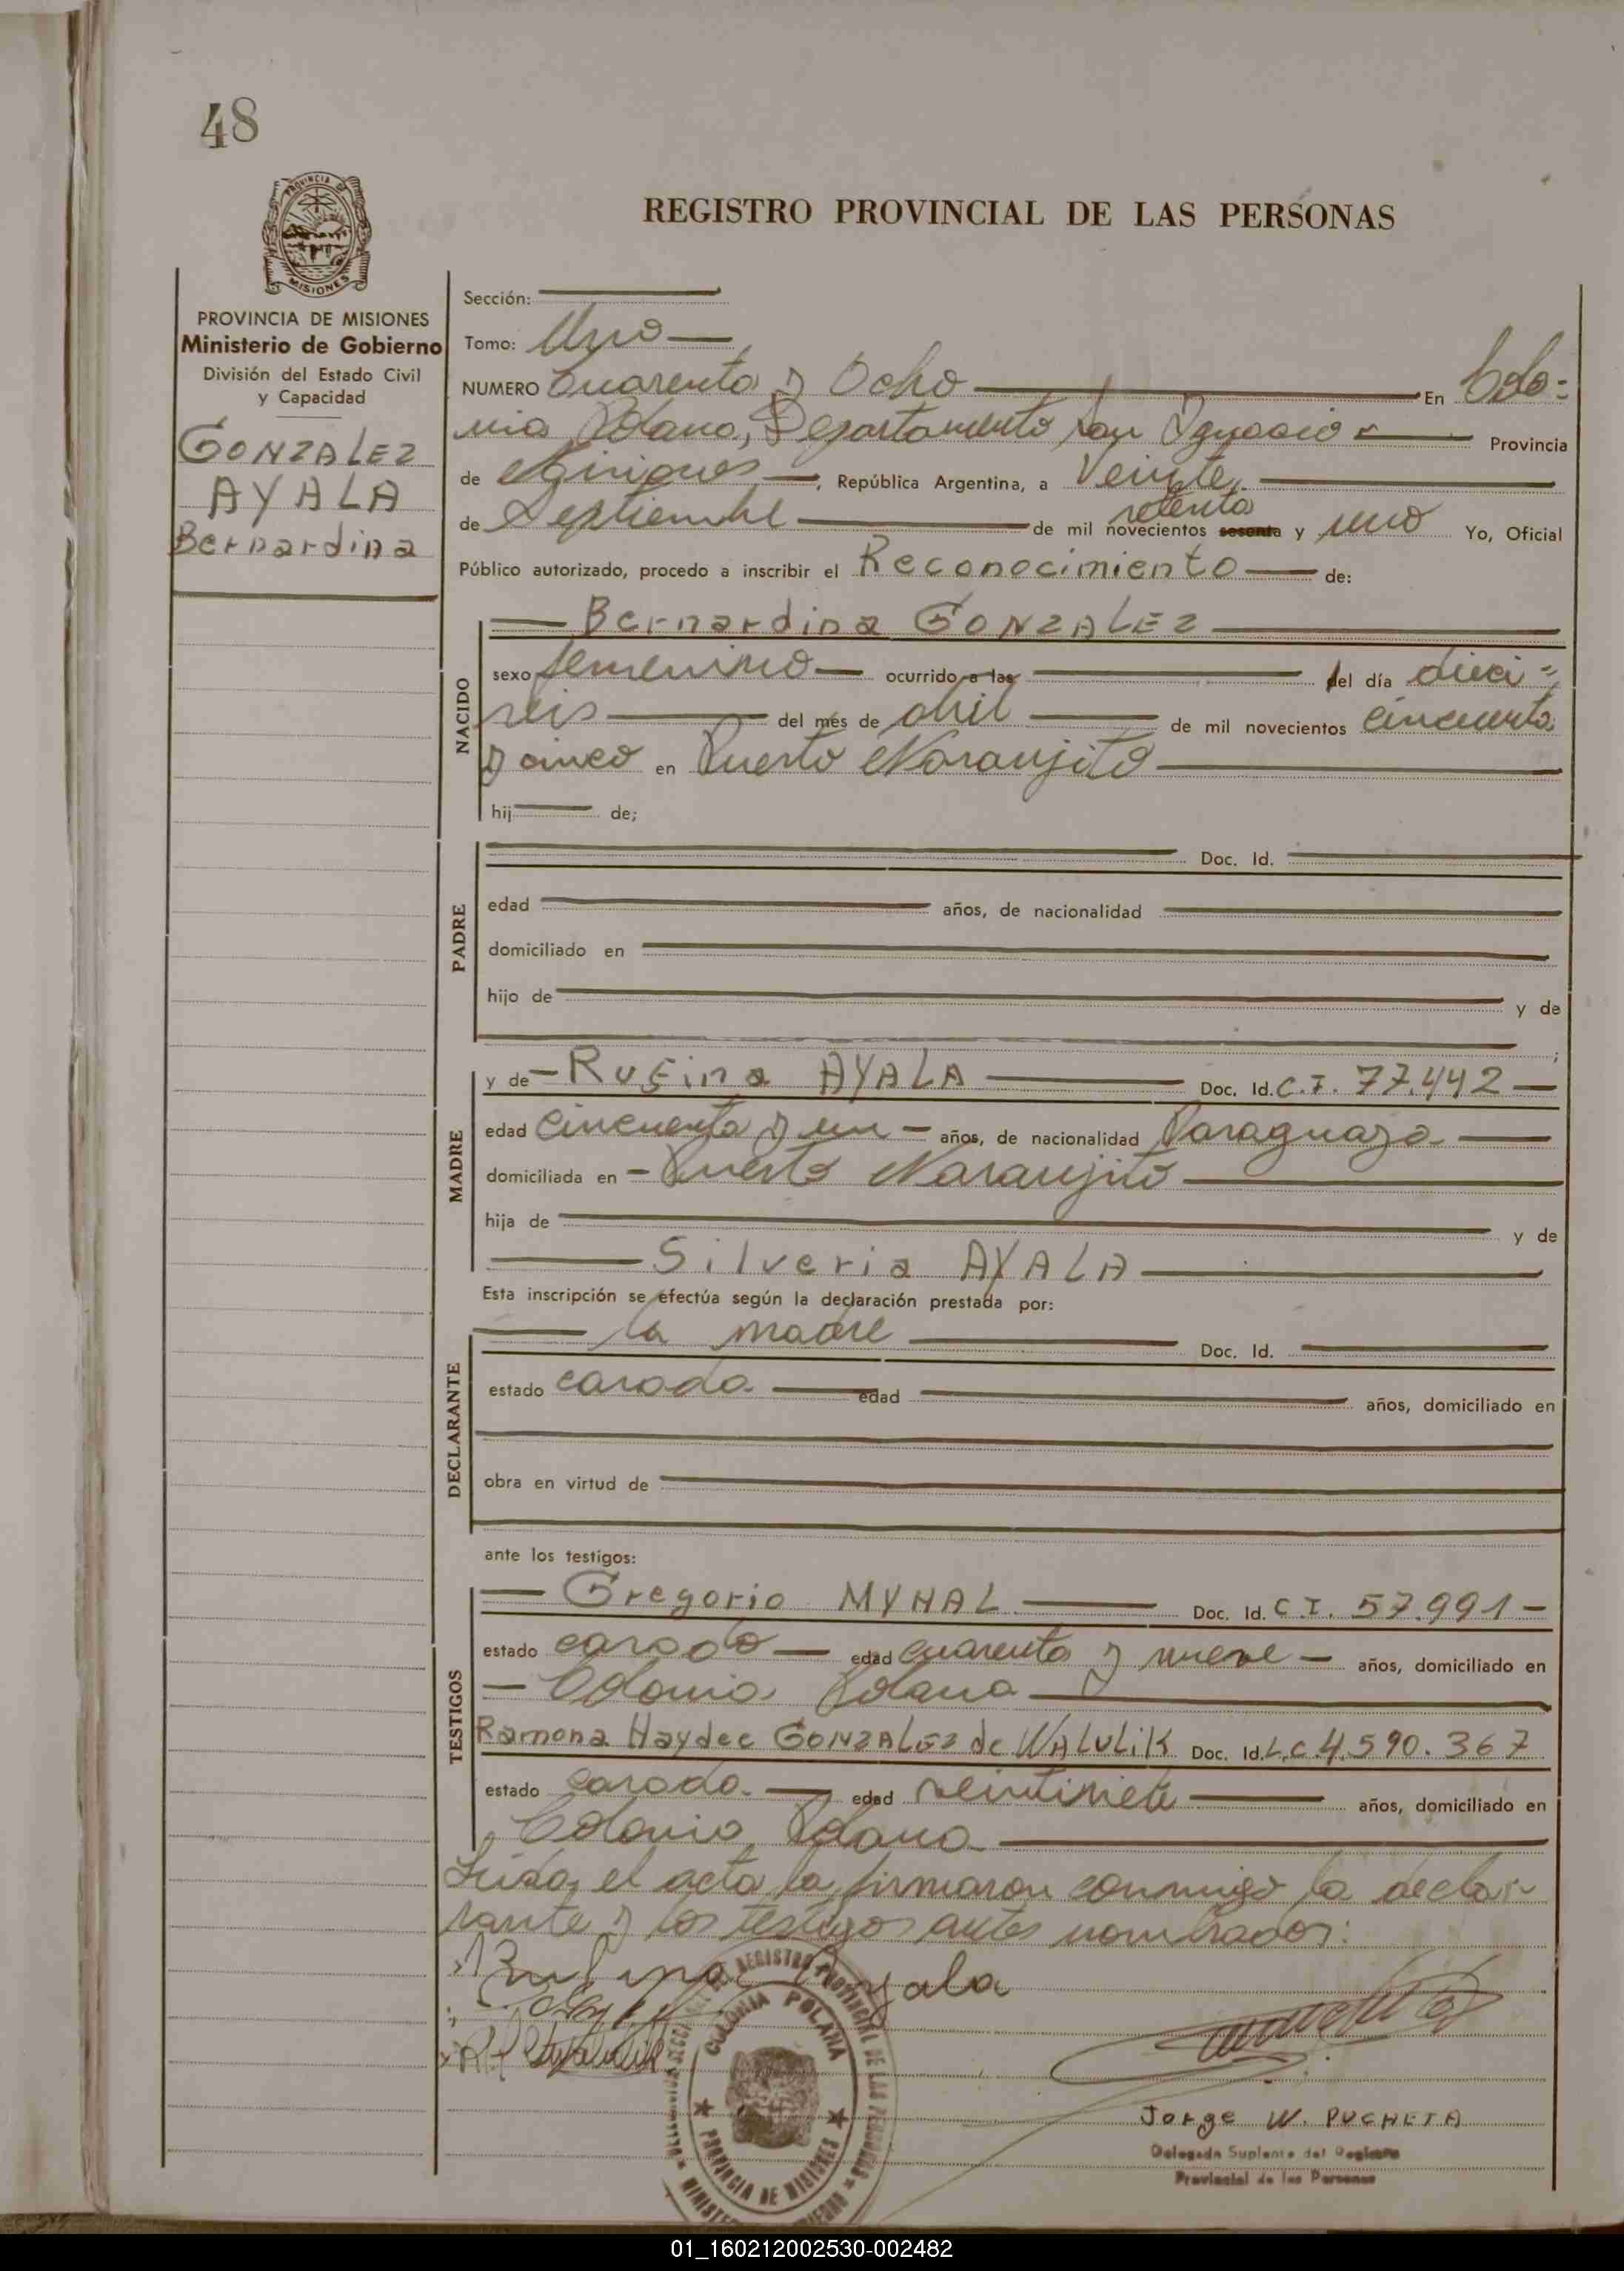 48
PROVINCIA DE MISIONES
REGISTRO PROVINCIAL DE LAS PERSONAS
PROVINCIA DE MISIONES
Ministerio de Gobierno
División del Estado Civil
y Capacidad
GONZALEZ
AYALA
Bernardina
Sección:
Tomo: Uno
NUMERO Cuarenta y Ocho En Colo=
nia Polana, Departamento San Ignacio Provincia
de Misiones, República Argentina, a Veinte
setenta
de Septiembre de mil novecientos sesenta y uno Yo, Oficial
Público autorizado, procedo a inscribir el Reconocimiento de:
NACIDO
Bernardina GONZALEZ
sexo femenino ocurrido a las del día dieci=
seis del mes de abril de mil novecientos cincuenta
y cinco en Puerto Naranjito
hij de;
PADRE
Doc. Id.
edad años, de nacionalidad
domiciliado en
hijo de y de
;
MADRE
y de Rufina AYALA Doc. Id. C.I. 77.442
edad cincuenta y un años, de nacionalidad Paraguaya
domiciliada en Puerto Naranjito
hija de y de
Silveria AYALA
Esta inscripción se efectúa según la declaración prestada por:
DECLARANTE
la madre Doc. Id.
estado casada edad años, domiciliado en
obra en virtud de
ante los testigos:
TESTIGOS
Gregorio MYHAL Doc. Id. C.I. 57.991
estado casado edad cuarenta y nueve años, domiciliado en
Colonia Polana
Ramona Haydee GONZALEZ de WALULIK Doc. Id. L.C 4.590.367
estado casada edad veintisiete años, domiciliado en
Colonia Polana
Leída el acta la firmaron conmigo la decla-
rante y los testigos antes nombrados:
Rufina Ayala
COLONIA POLANA
PROVINCIA DE MISIONES
Jorge W. PUCHETA
Delegado Suplente del Registro
Provincial de las Personas
01_160212002530-002482